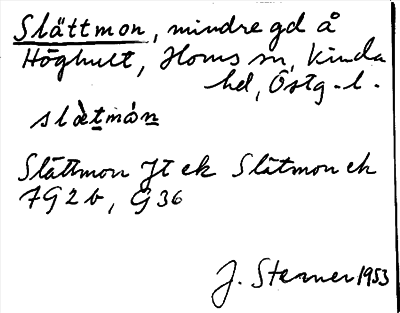 Slättmon, mindre gd å
Höghult, Horns sn, Kinda
hd, Östg. l.
slætmón
Slättmon Jt ek Slätmon ek
7G2b, G36
J. Sterner 1953